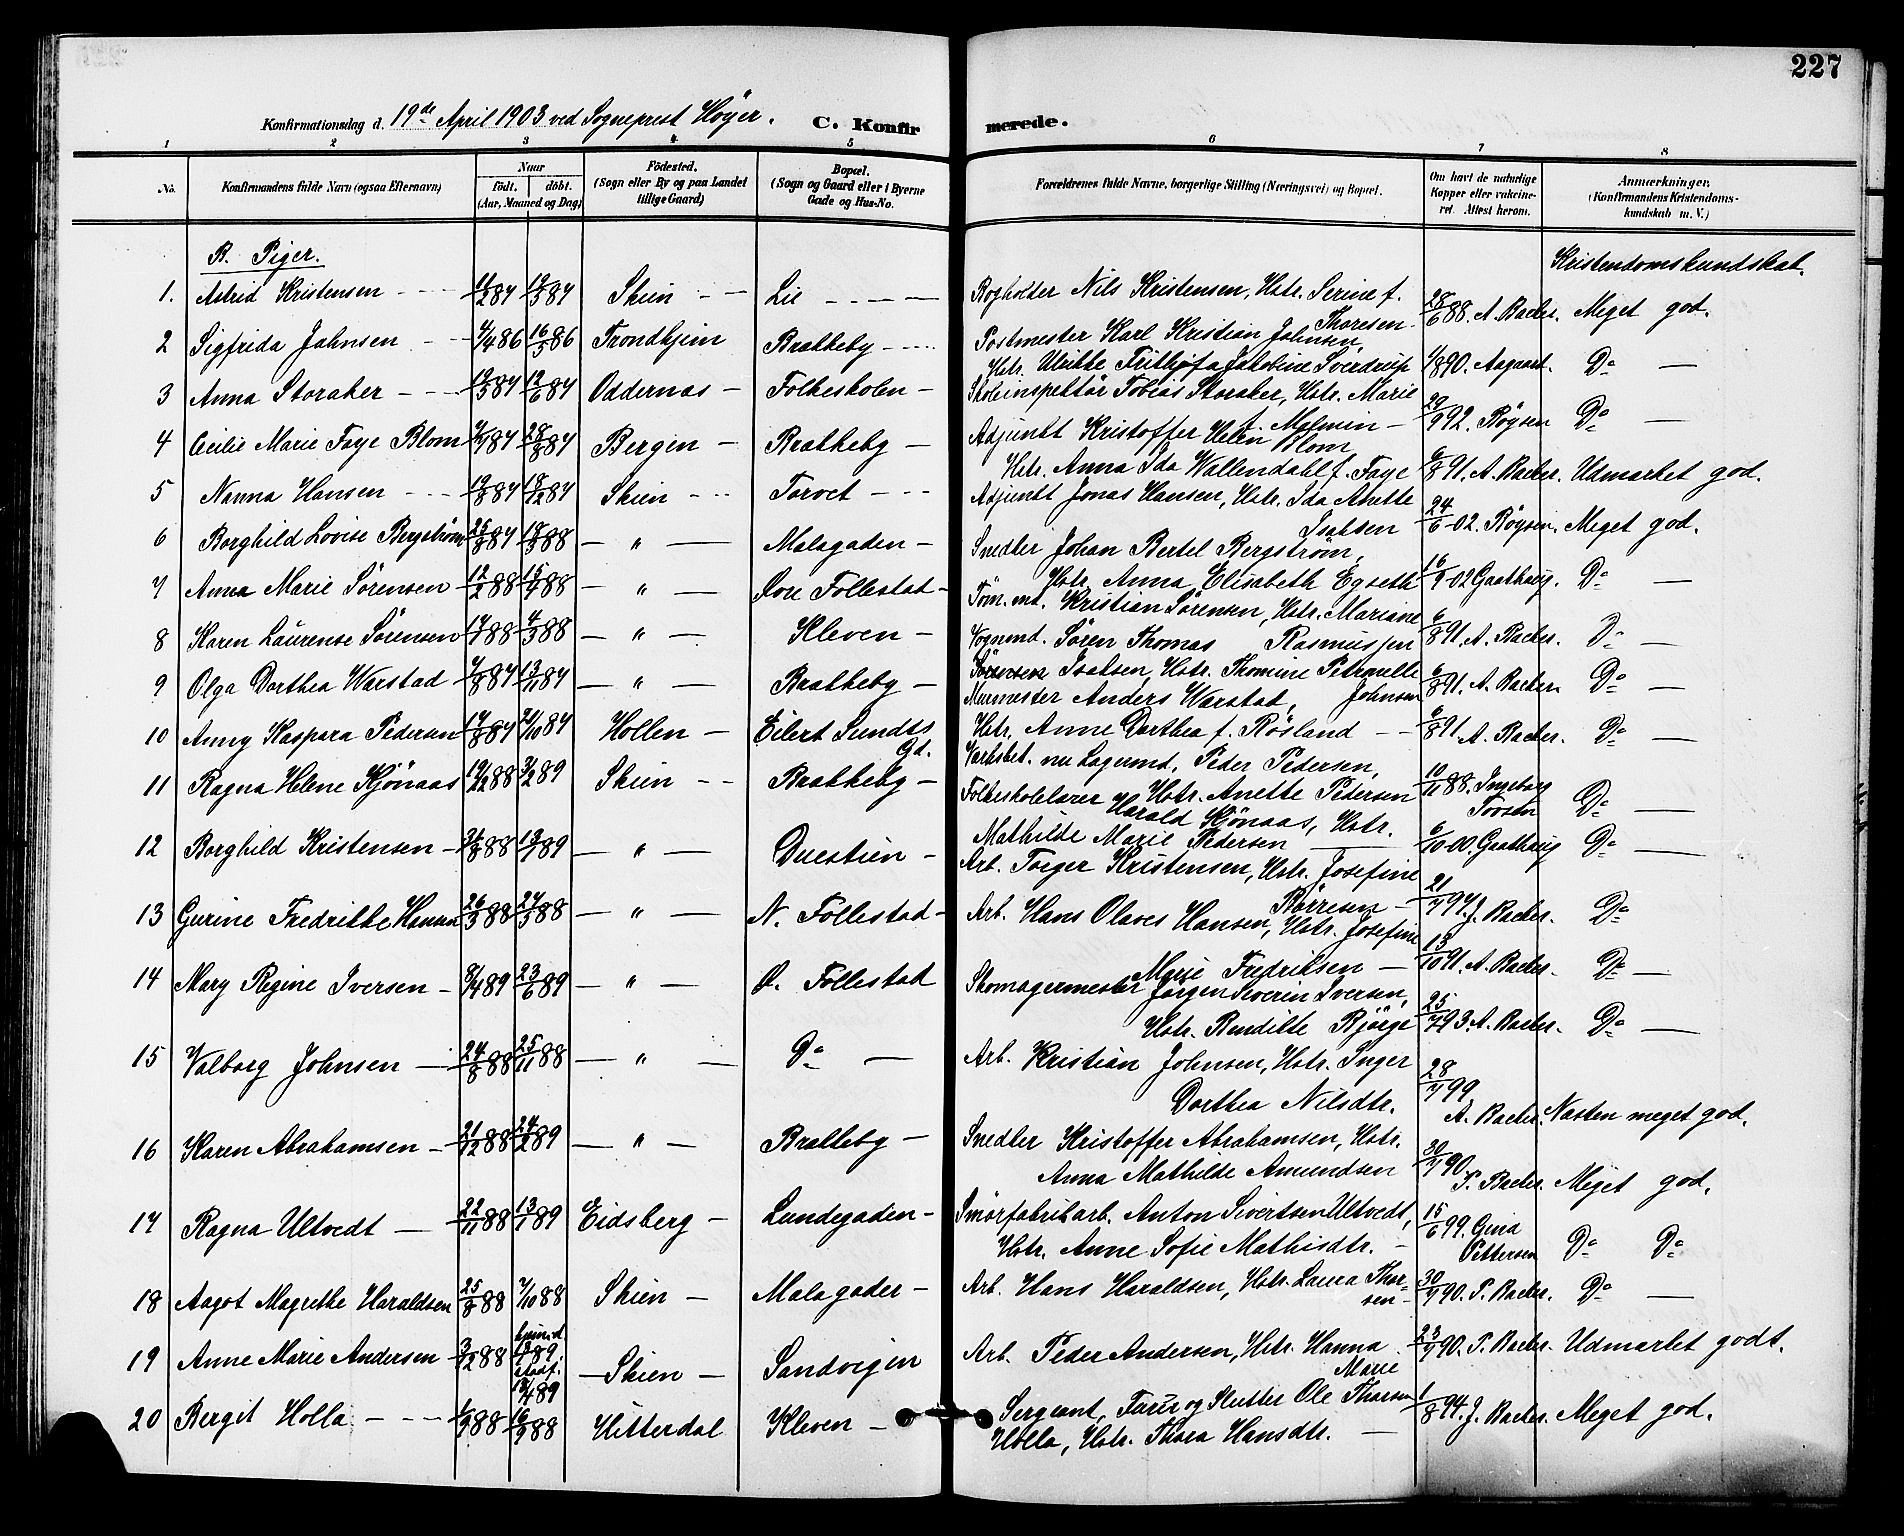 227
Konfirmationsdag d. 19de April 1903 ved Sogneprest Höyer. C. Konfirmerede.
1 2 3 4 5 6 7 8
No. Konfirmandens fulde Navn (ogsaa Efternavn) Naar födt. döbt. (Aar, Maaned og Dag) Födested. (Sogn eller By og paa Landet tillige Gaard) Bopæl. (Sogn og Gaard eller i Byerne Gade og Hus-No. Forældrenes fulde Navne, borgerlige Stilling (Næringsvei) og Bopæl. Om havt de naturlige Kopper eller vakcineret. Attest herom. Anmærkninger. (Konfirmandens Kristendomskundskab m. V.)
B. Piger. Kristendomskundskab.
1. Astrid Kristensen Skien Lie Bogholder Nils Kristensen, Hstr. Serine f. Thoresen 28/6 88. A. Backer. Meget god.
2 Sigfrida Johnsen 4/4 86 16/5 86 Trondhjem Brekkeby Postmester Karl Kristian Johnsen, Hstr. Ulrikke Frithjofa Jakobine Sverdrup 1/8 90. Aagaart. Do —
3 Anna Storaker Oddernes Folkeskolen Skoleinspektör Tobias Storaker, Hstr. Marie f. 29/9 92. Röysen Do —
4 Cecilie Marie Faye Blom 28/8 87 Bergen Brekkeby Adjunkt Kristoffer Blom Hstr. Anna Ida Wallendahl f. Faye 6/8 91. A. Backer. Udmærket god.
5 Nanna Hansen 19/8 87 18/12 87 Skien Torvet Adjunkt Jonas Hansen, Hstr. Ida Anette Isaksen 24/6 02. Röysen. Meget god.
6 Borghild Lovise Bergström 18/3 88 — " — Melagaden Snedker Johan Bertel Bergström, Hstr. Anna Elisabeth Egseth 02 Gaathaug. Do —
7 Anna Marie Sörensen 12/2 88 15/4 88 — " — Övre Follestad Töm.md. Kristian Sörensen, Hstr. Mariane Rasmussen 6/8 91. A. Backer. Do —
8 Karen Laurense Sörensen 4/3 88 — " — Kleven Vognmd. Sören Thomas Isaksen, Hstr. Thomine Petronelle Johnsen 6/8 91. A. Backer. Do —
9 Olga Dorthea Warstad 13/11 87 — " — Brekkeby Murmester Anders Warstad, Hstr. Anne Dorthea f. Rösland 6/8 91. A. Backer. Do —
10 Anny Kaspara Pedersen 21/10 87 Hollen Eilert Sundts Gd. nu Lagermd. Peder Pedersen, Hstr. Anette Pedersen 10/11 88. Ingeborg Do —
11 Ragna Helene Kjönaas 19/12 88 3/2 89 Skien Brekkeby Folkeskolelærer Harald Kjönaas, Hstr. Mathilde Marie Pedersen 6/10 00. Gaathaug Do —
12 Borghild Kristensen — " — Duestien Arb. Torger Kristensen, Hstr. Josefine Börresen 21/7 97. J. Backer. Do
13 Gurine Fredrikke Hansen 26/3 88 27/5 88 — " — N. Follestad Arb. Hans Olaves Hansen, Hstr. Josefine Marie Fredriksen 13/10 91. A. Backer. Do —
14 Mary Regine Iversen 8/4 89 23/6 89 — " — Ö. Follestad Skomagermester Jörgen Severin Iversen, Hstr. Bendikte Bjöge 25/7 93. A. Backer. Do —
15 Valborg Johnsen 24/8 88 25/11 88 — " — Do — Arb. Kristian Johnsen, Hstr. Inger Dorthea Nilsdtr. 28/7 99 A. Backer. Næsten meget god.
16 Karen Abrahamsen 21/12 88 24/2 89 — " — Brekkeby Snedker Kristoffer Abrahamsen, Hstr. Anna Mathilde Amundsen 30/7 90 P. Backer. Meget god.
17 Ragna Ultvedt 22/11 88 13/1 89 Eidsberg Lundegaden Smörfabrikarb. Anton Sivertsen Ultvedt, Hstr. Anne Sofie Mathisdtr. 15/6 99. Gina Pettersen Do Do
18 Aagot Magrethe Haraldsen 25/8 88 7/10 88 Skien Melagaden Arb. Hans Haraldsen, Hstr. Laura Thorsen 30/7 90. P. Backer. Do —
19 Anne Marie Andersen 3/12 88 hjemd. stadf. 89 Skien Sandvigen Arb. Peder Andersen, Hstr. Hanna Marie 23/7 90. P. Backer. Udmærket godt.
20 Bergit Holla 88 16/9 88 Hitterdal Kleven Sergeant, Farer og Slutter Ole Thorsen Holla, Hstr. Thora Hansdtr. 1/8 94. J. Backer. Meget god.